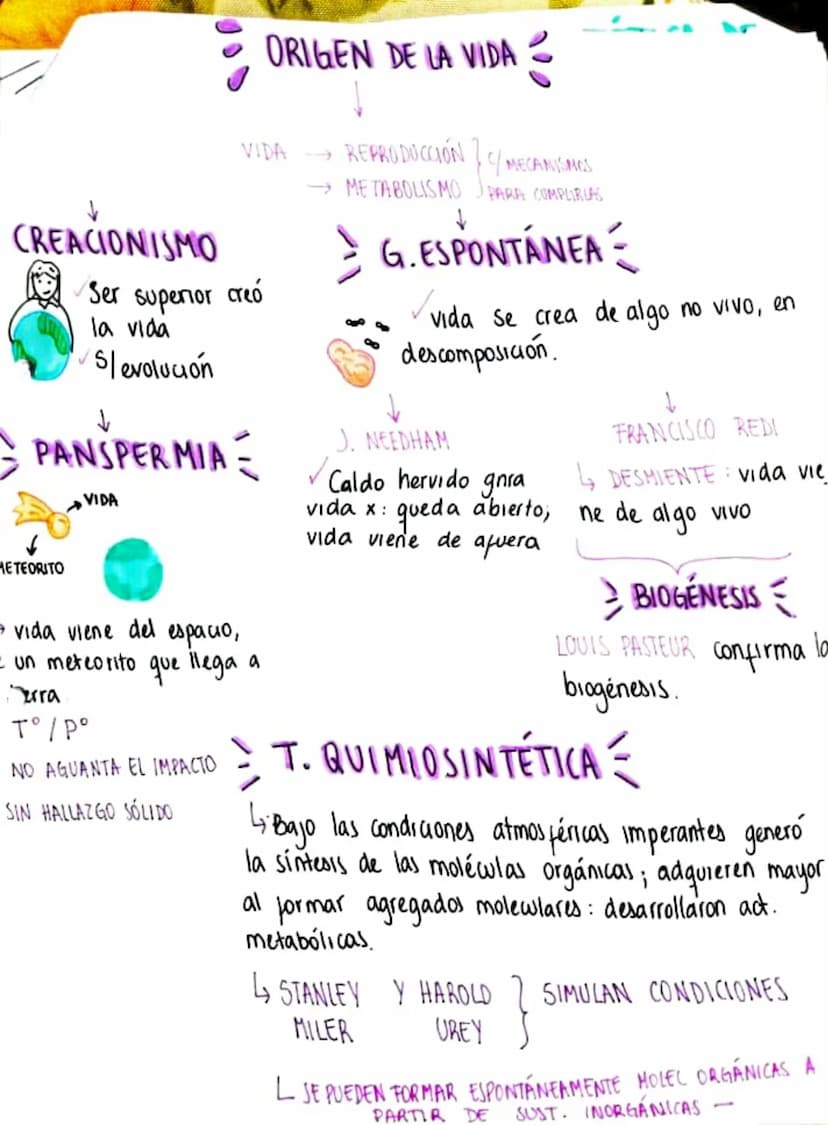 ORIGEN DE LA VIDA
VIDA → REPRODUCCIÓN
→ METABOLISMO
C/ MECANISMOS
PARA CUMPLIRLAS
CREACIONISMO
Ser superior creó
la vida
S/ evolución
G. ESPONTÁNEA
vida se crea de algo no vivo, en
descomposición.
J. NEEDHAM
Caldo hervido gnra
vida x: queda abierto;
vida viene de afuera
FRANCISCO REDI
↳ DESMIENTE: vida vie
ne de algo vivo
BIOGÉNESIS
LOUIS PASTEUR confirma la
biogénesis.
PANSPERMIA
→ VIDA
METEORITO
vida viene del espacio,
un meteorito que llega a
T° / P°
NO AGUANTA EL IMPACTO
SIN HALLAZGO SÓLIDO
T. QUIMIOSINTÉTICA
↳ Bajo las condiciones atmosféricas imperantes generó
la síntesis de las moléculas orgánicas; adquieren mayor
al formar agregados moleculares: desarrollaron act.
metabólicas.
↳ STANLEY Y HAROLD } SIMULAN CONDICIONES
MILER UREY
SE PUEDEN FORMAR ESPONTÁNEAMENTE MOLEC ORGÁNICAS A
PARTIR DE SUST. INORGÁNICAS —